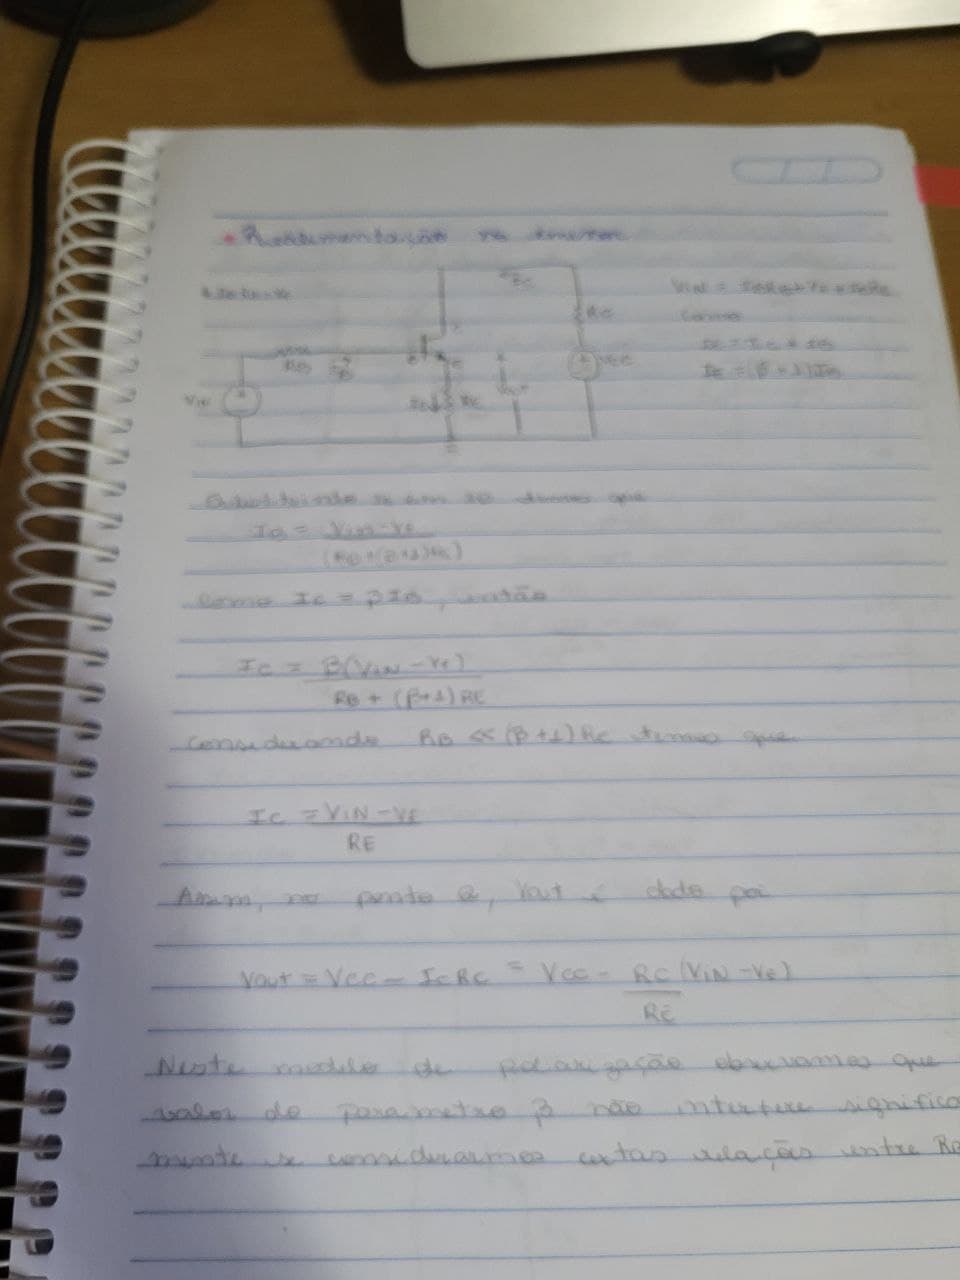 • Realimentação no emissor
IC
RC
VCC
RB
VIN
RE
VIN =
como
IE = IC + IB
IE = (β + 1)IB
temos que
IB = VIN - VE
(RB + (β+1)RE)
Como IC = βIB, então
IC = B(VIN - VE)
RB + (β+1)RE
Considerando RB << (β+1)RE temos que
IC = VIN - VE
RE
Assim, no ponto Q, Vout é dado por
Vout = VCC - ICRC = VCC - RC (VIN - VE)
RE
Neste modelo de polarização observamos que
valor do parametro β não interfere significa
mente se considerarmos certas relações entre